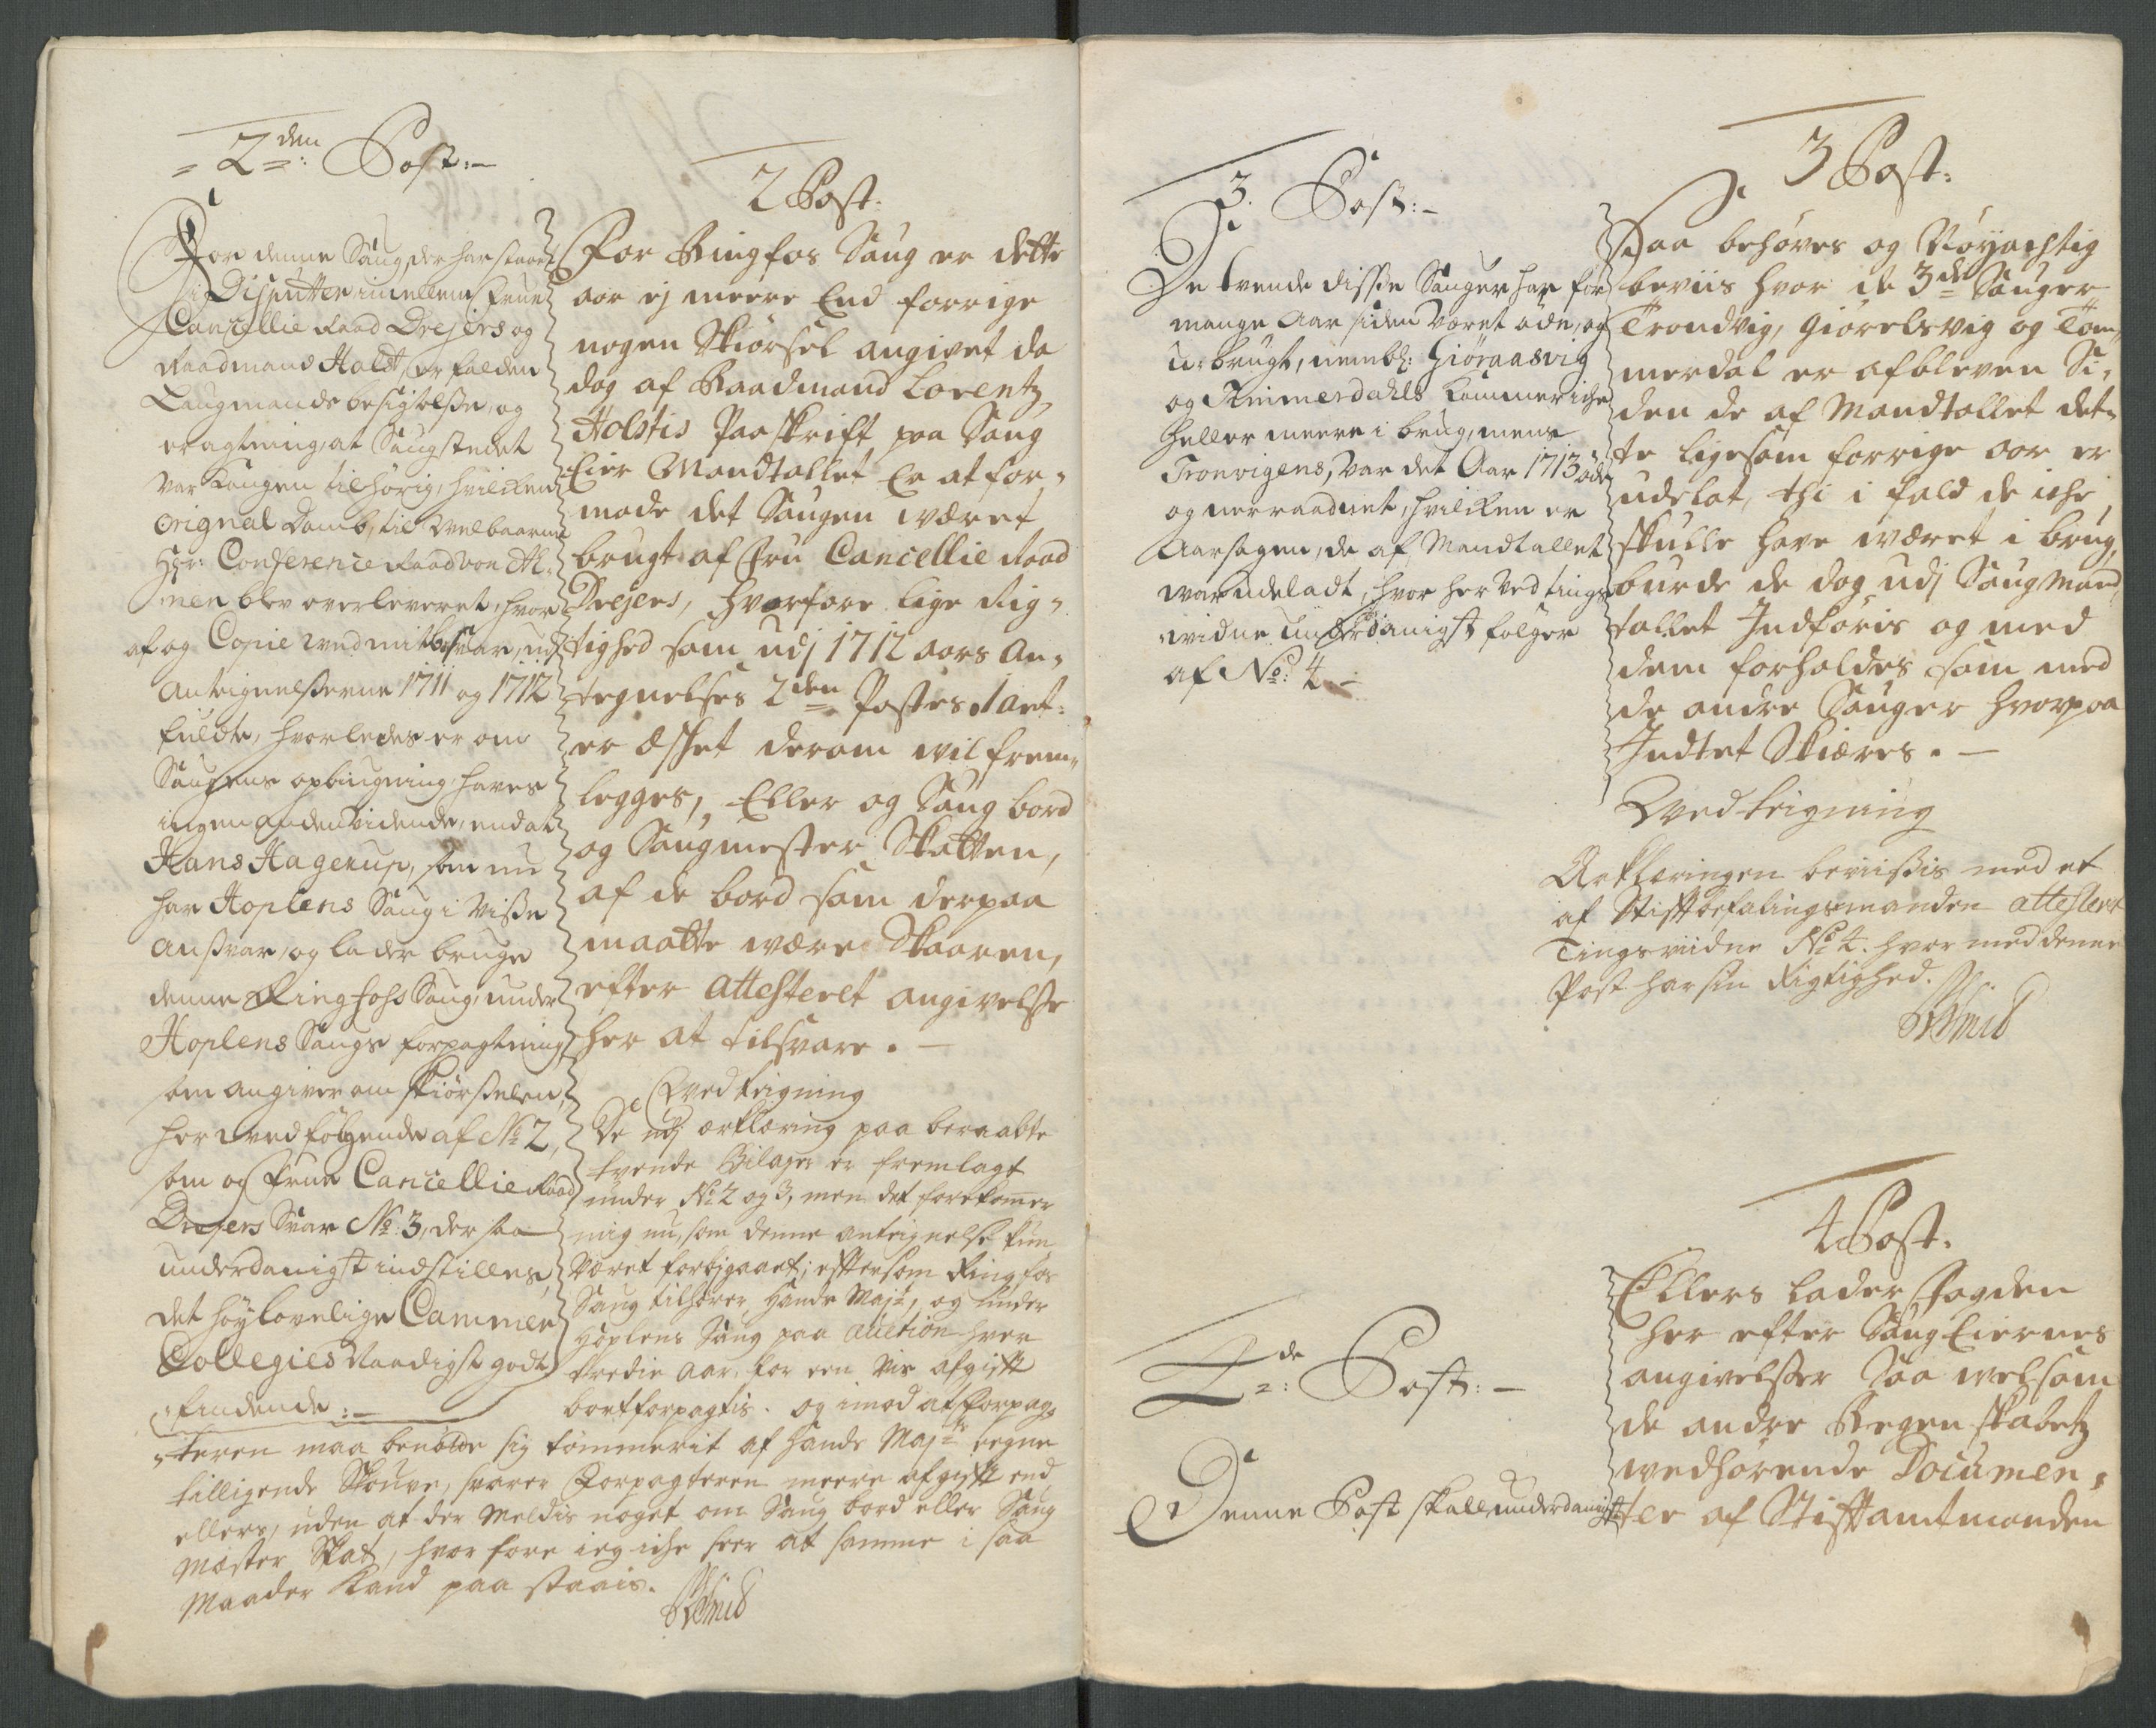 2den: Post:
For denne Saug der har staaet
i Disputte imellem Frue
Cancellie Raad Drejers og
Raadmand Holst, er falden
Laugmands besigtelsse, og
eragtning, at Saugstedet
var Kongen tilhörig, hvilken
orignal Domb, til Welbaarne
Hr: Conference Raad von Ah-
nen blev overleveret, hvor
af og Copie wed mit besvar, udj
Anteignelsserne 1711 og 1712
fuldte, hvorledes er om
Saugens opbrugning, haves
ingen anden vidende, end at
Hans Hagerup, som nu
har Hoplens Saug i Visse
ansvar, og lader bruge
denne Ringfohs Saug, under
Hoplens Saugs forpagtning
som angiver om skiörsselen,
her wedfölgende af No 2,
som og Frue Cancellie Raad
Drejers Svar No: 3, der saa
underdanigst indstilles,
det höylovelige Cammer
Collegies Naadigst godt
findende:
2 Post:
For Ringfos Saug er dette
aar ej meere End forrige
nogen Skiörsel angivet da
dog af Raadmand Lorentz
Holstis Paaskrift paa Saug
Eier Mandtallet Er at for-
mode det Saugen wæret
brugt af Fru Cancellie Raad
Drejers, hvorfore lige Rig-
tighed som udj 1712 aars An-
tegnelses 2den Postes 1 art:
er Esket derom wil frem-
legges, Eller og Saug bord
og Saugmester Skatten,
af de bord som derpaa
maatte være Skaaren,
efter attesteret angivelsse
her at tilsvare.
Qvedteigning
De udj erklæring paa beraabte
tvende Bilager er fremlagt
under No 2 og 3, men det forekommer
mig nu, som denne anteignelse kun
Været forbigaaet; effter som Ringfos
Saug tilhører Hands Maj:t, og under
Hoplens Saug paa auction hver
tredie Aar, for een vis afgifft
bortforpagtis. og imod at Forpag-
teren maa benötte sig tömmerit af Hands Maj:ts eegne
tilligende Skouve, svarer Forpagteren meere afgifft end
ellers, uden at der meldis noget om Saug bord eller Saug
Mester Skat, hvorfore ieg iche seer at samme i saa
Maader Kand paa staais.
3. Post:
De tvende disse Sauger har for
mange Aar siden været øde, og
u-brugt, nembl: Giöraasvig
og Timmerdahls kommer iche
heller meere i brug, mens
Tronvigens, var det Aar 1713 øde
og nerraadnet, hvilken er
Aarsagen, de af Mandtallet
war udeladt, hvor her ved tings
widne underdanigst følger
af No: 4.
3 Post:
Saa behøves og Nöyachtig
beviis hvor de 3de Sauger
Trondvig, Giörelsvig og Töm-
merdal er afbleven Si-
den de af Mandtallet det-
te ligesom forrige aar er
udelat, thi i fald de iche
skulle have wæret i brug,
burde de dog udj Saug Mand
tallet Indföris og med
dem forholdes som med
de andre Sauger hvorpaa
Indtet Skiæres.
Qvedteigning
Erklæringen beviissis med et
af Stifftbefalingsmanden attesteret
Tingsvidne No 4. hvormed denne
Post har sin Rigtighed.
4de: Post:
Denne Post skall underdanigst
4 Post:
Ellers lader Fogden
her efter Saug Eiernes
angivelsser Saa welsom
de andre Regenskabetz
wedhørende Documen-
ter af Stifftamtmanden